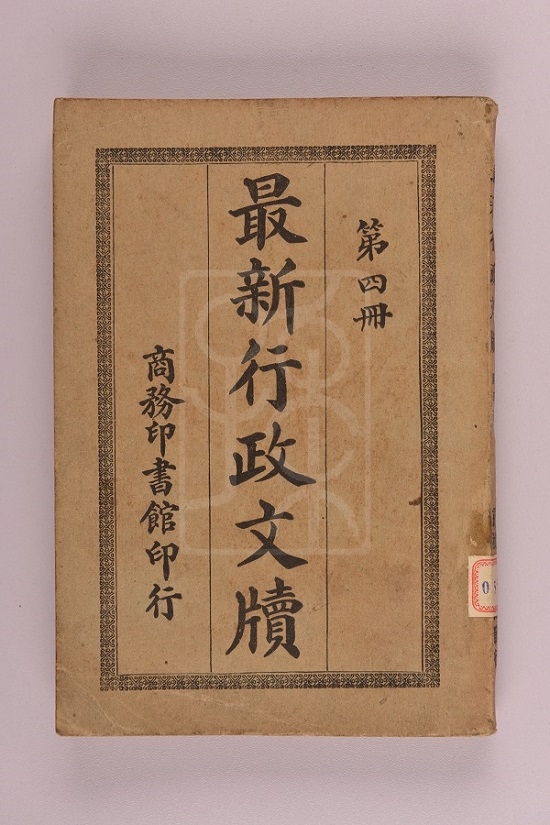 第四冊
最新行政文牘
商務印書館印行